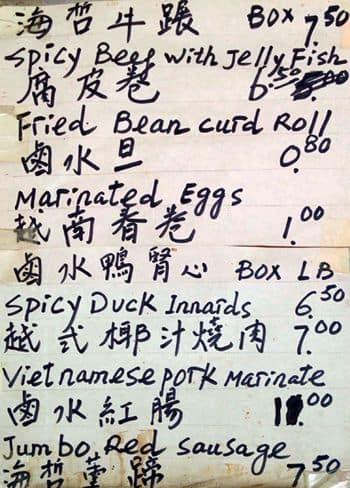 海哲牛蹍 BOX 7.50
Spicy Beef with Jelly Fish
腐皮卷 6.50
Fried Bean curd Roll
鹵水旦 0.80
Marinated Eggs
越南春卷 1.00
鹵水鴨腎心 BOX LB
Spicy Duck Innaids 6.50
越式椰汁燒肉 7.00
Vietnamese pork Marinate
鹵水紅腸 .00
Jumbo Red Sausage
海哲蹄 7.50